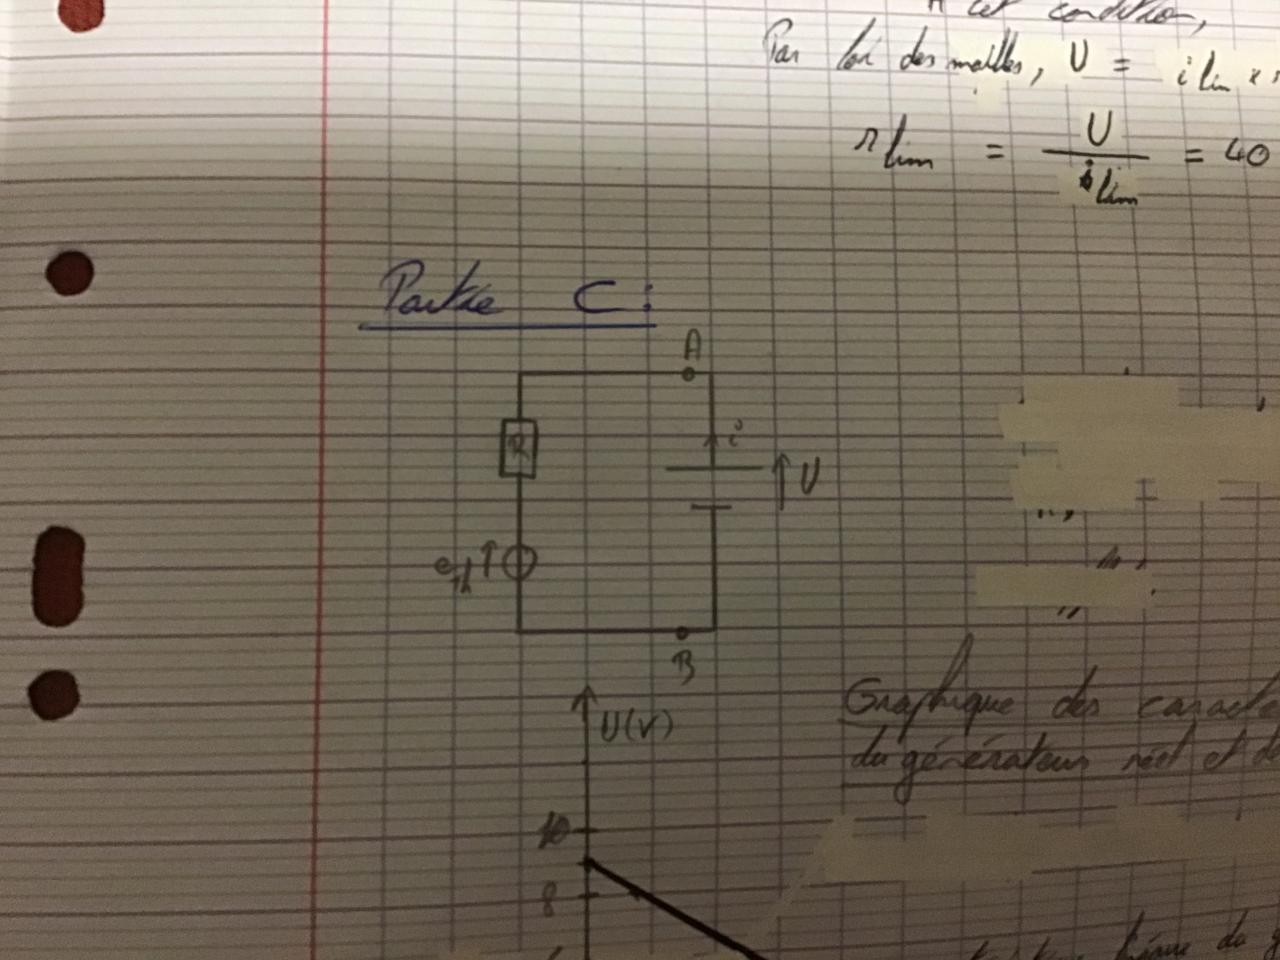 A cet condition,
Par loi des mailles, U = i lim x
r lim = U / i lim = 40
Partie C :
A
R
i
U
eTh
B
U(V)
Graphique des caracté
du générateur réel et de
10
8
du g